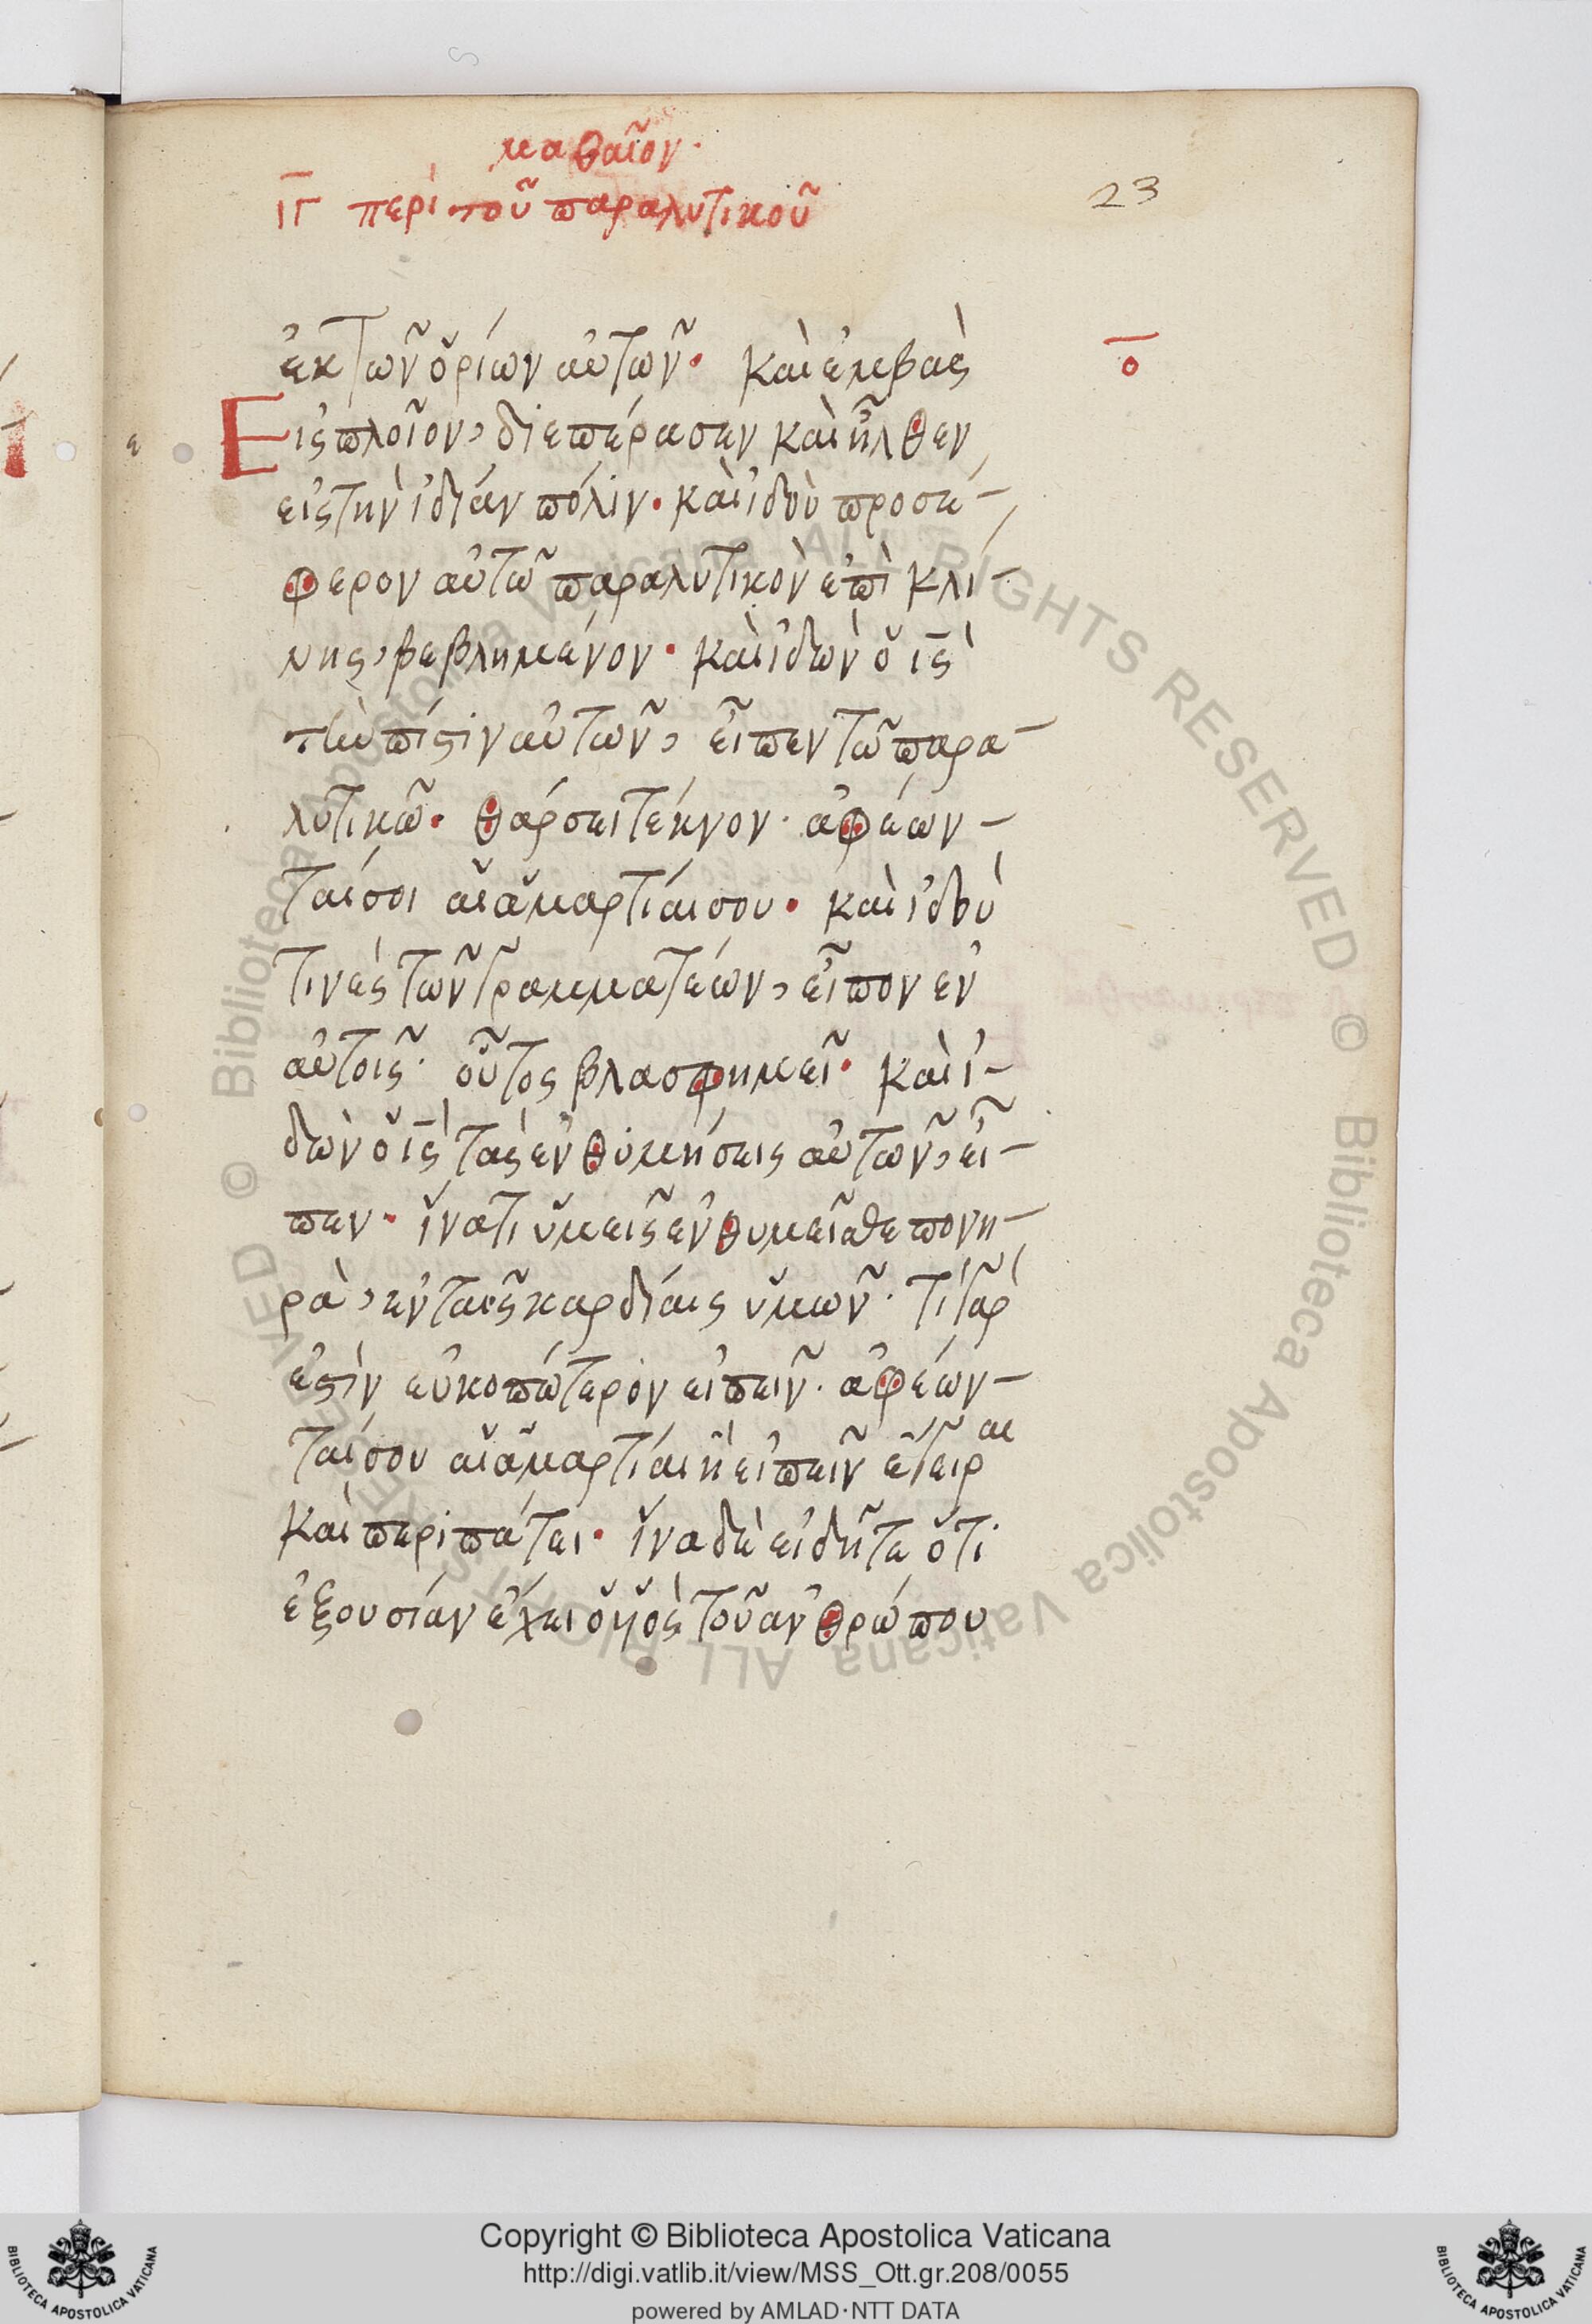 ματθαῖον·
ΙΓ περὶ τοῦ παραλυτικοῦ
23
ἐκ τῶν ὁρίων αὐτῶν· καὶ ἐμβὰς
ο
ε
Εἰς πλοῖον, διεπέρασεν καὶ ἦλθεν
εἰς τὴν ἰδίαν πόλιν· καὶ ἰδοὺ προσέ-
φερον αὐτῶ παραλυτικὸν ἐπὶ κλί-
νης, βεβλημένον· καὶ ἰδὼν ὁ ις
τὴν πίστιν αὐτῶν, εἶπεν τῶ παρα-
λυτικῶ· θάρσει τέκνον· ἀφέων-
ταί σοι αἱ ἁμαρτίαι σου· καὶ ἰδοὺ
τινὲς τῶν γραμματέων, εἶπον ἐν
αὐτοῖς· οὗτος βλασφημεῖ· καὶ ἰ-
δὼν ὁ ις τὰς ἐνθυμήσεις αὐτῶν, εἶ-
πεν· ἵνατι ὑμεῖς ἐνθυμεῖσθε πονη-
ρὰ, ἐν ταῖς καρδίαις ὑμῶν· τί γάρ
ἐστὶν εὐκοπώτερον εἰπεῖν· ἀφέων-
ταί σου αἱ ἁμαρτίαι ἢ εἰπεῖν ἔγειραι
καὶ περιπάτει· ἵνα δὲ εἰδῆτε ὅτι
ἐξουσίαν ἔχει ὁ υἱὸς τοῦ ἀνθρώπου
© Biblioteca Apostolica Vaticana ALL RIGHTS RESERVED © Biblioteca Apostolica Vaticana ALL RIGHTS RESERVED
Copyright © Biblioteca Apostolica Vaticana
http://digi.vatlib.it/view/MSS_Ott.gr.208/0055
powered by AMLAD·NTT DATA
BIBLIOTECA APOSTOLICA VATICANA
BIBLIOTECA APOSTOLICA VATICANA